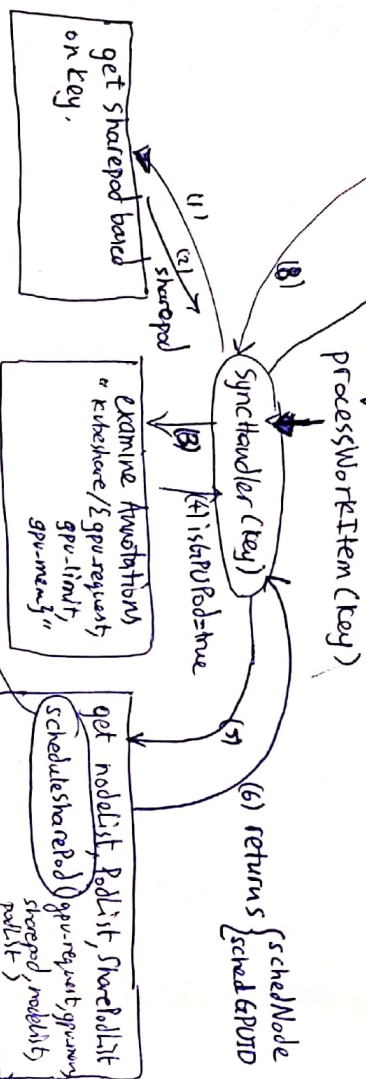 processWorkItem(key)
(8)
syncHandler(key)
(1)
(2)
sharepod
get sharepod based
on key.
(3)
(4) isGPUPod=true
examine Annotations
"kubeshare/{gpu-request,
gpu-limit,
gpu-mem}"
(5)
(6) returns {schedNode
{schedGPUID
get nodeList, PodList, SharePodList
scheduleSharePod(gpu-request, gpu-mem,
sharepod, nodeList,
podList)